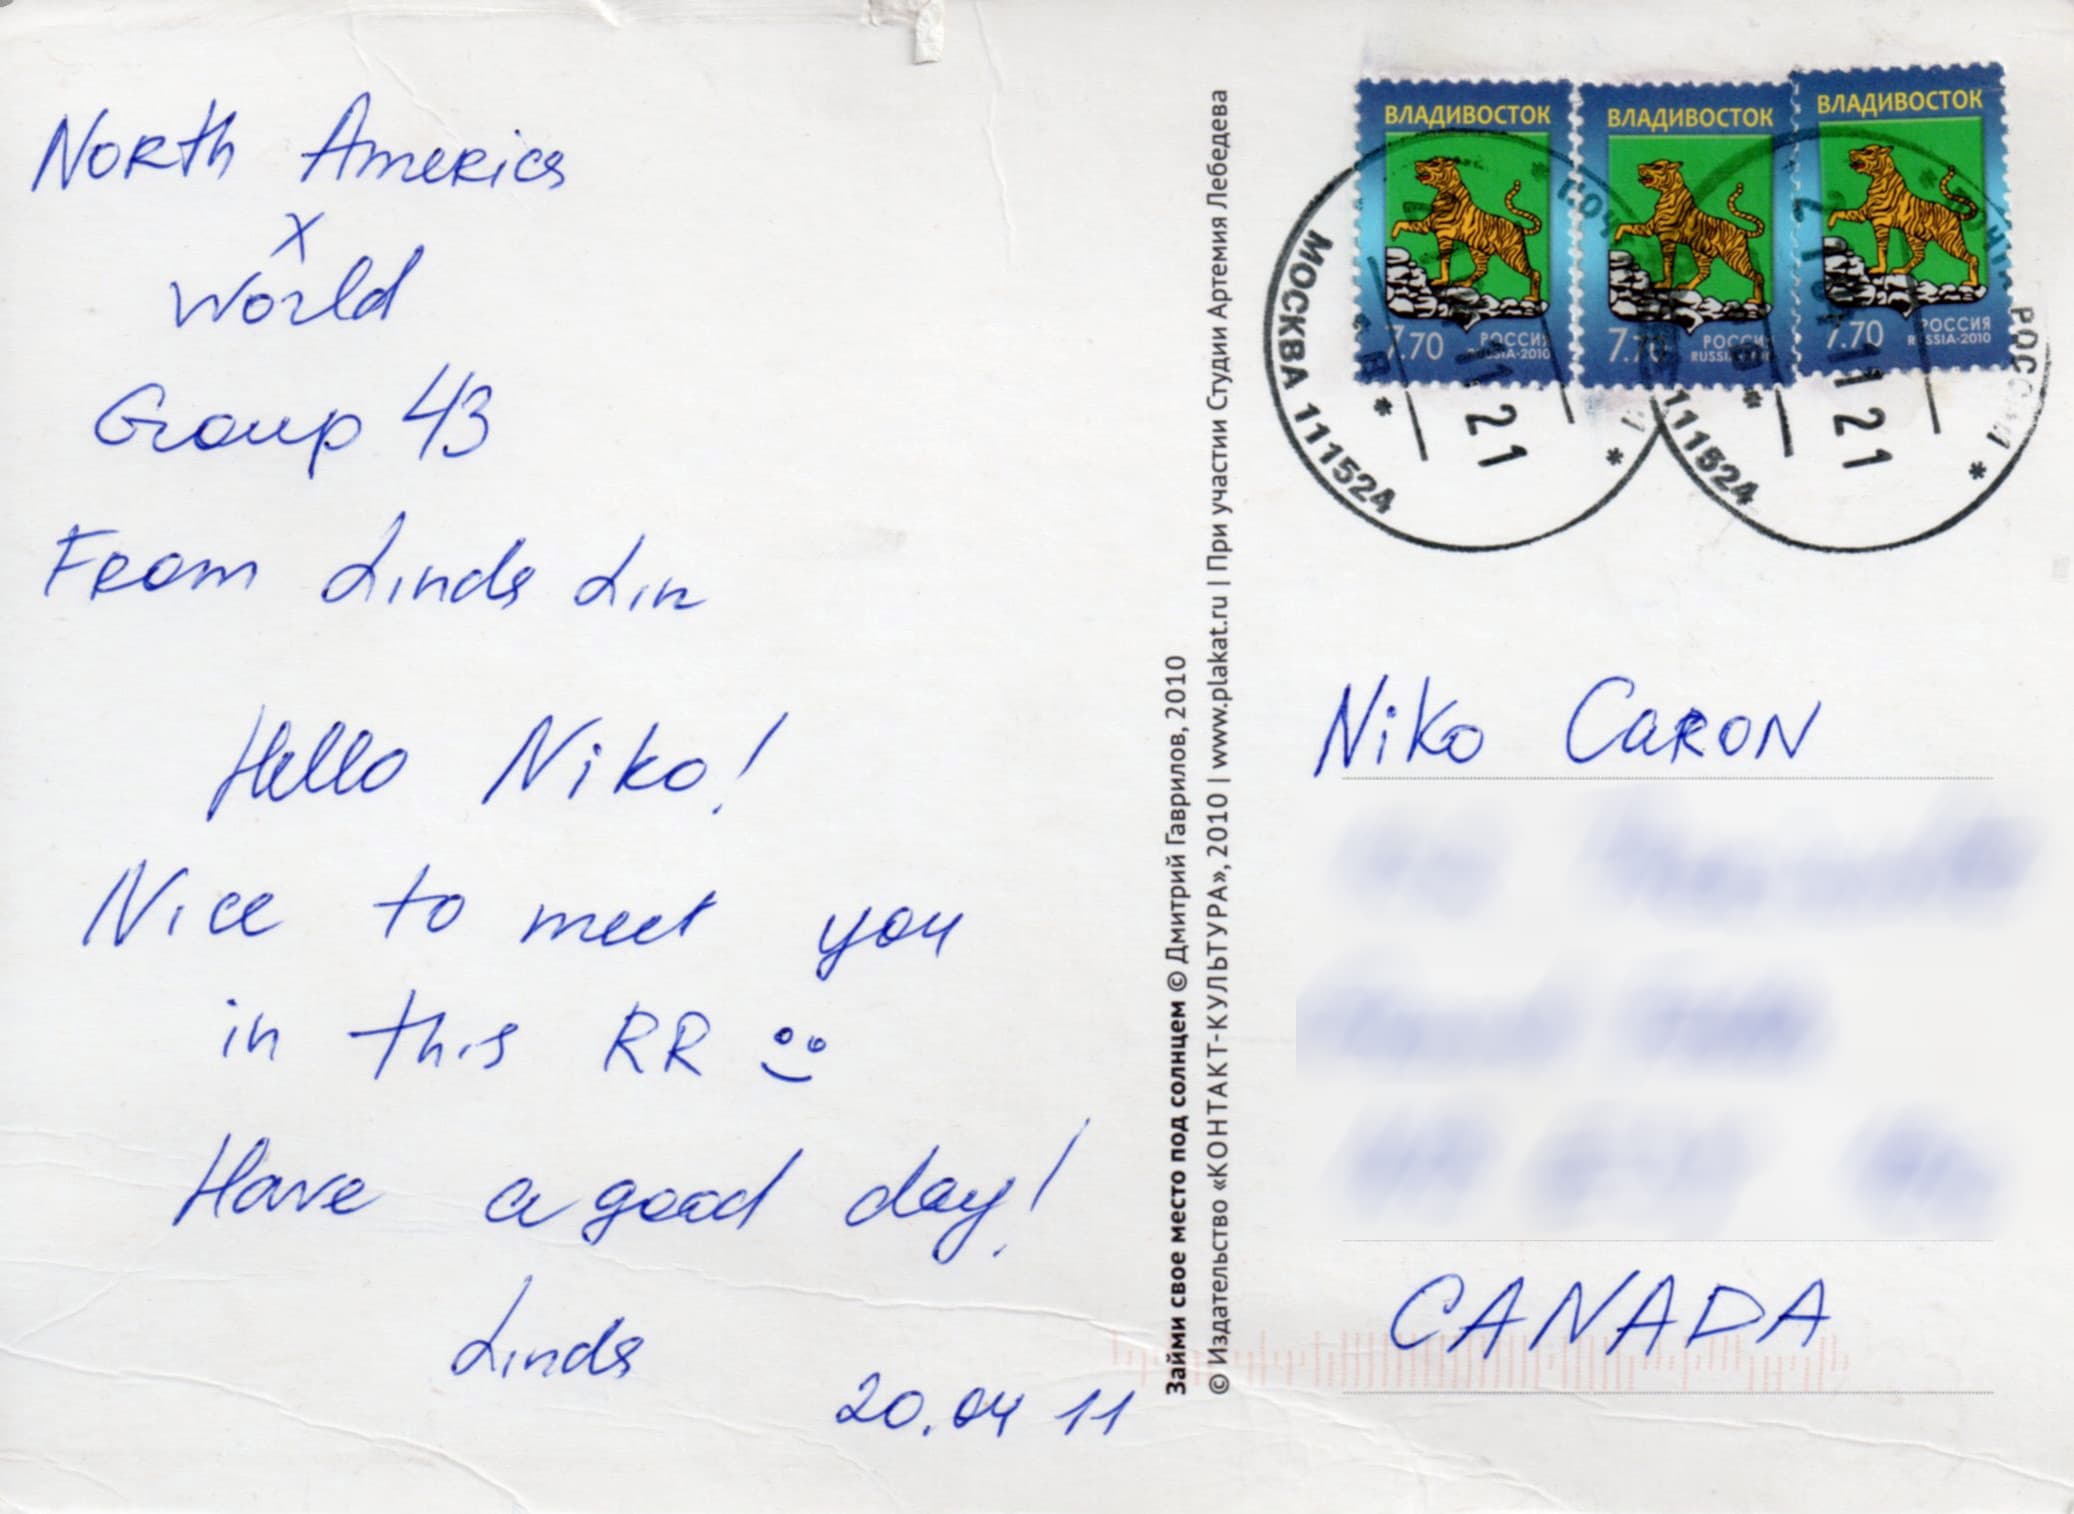 North America
x
World
Group 43
From Linda Lin
Hello Niko!
Nice to meet you
in this RR
Have a good day!
Linda
20.04 11
Займи свое место под солнцем © Дмитрий Гаврилов, 2010
© Издательство «КОНТАКТ-КУЛЬТУРА», 2010 | www.plakat.ru | При участии Студии Артемия Лебедева
ВЛАДИВОСТОК
7.70 РОССИЯ
RUSSIA-2010
ВЛАДИВОСТОК
7.70 РОССИЯ
RUSSIA-2010
ВЛАДИВОСТОК
7.70 РОССИЯ
RUSSIA-2010
МОСКВА 111524
11 21
111524
РОССИЯ
11 21
Niko Caron
CANADA